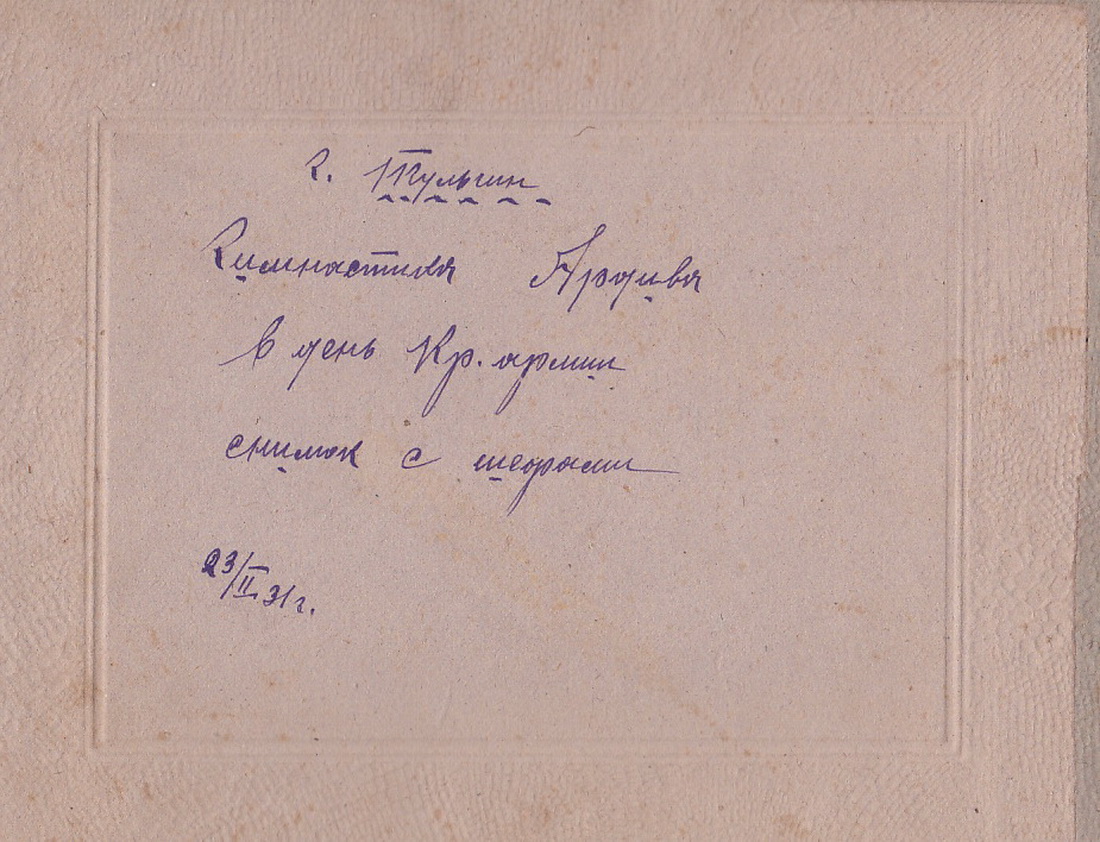 г. Тульчин
Гимнастика
в день Кр. армии
снимок с шефами
23/II 31 г.